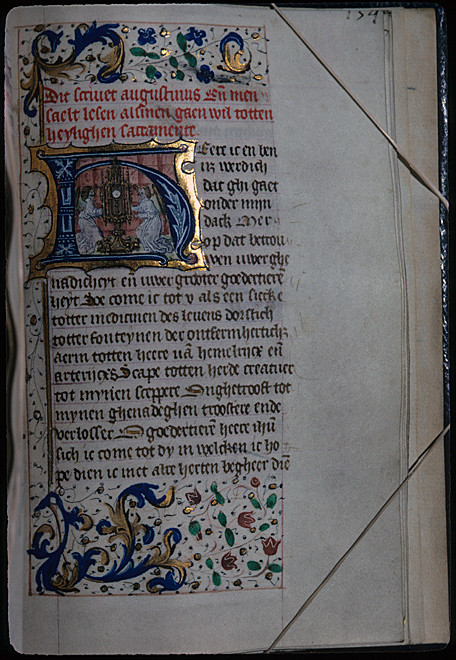 134
Dit scrivet augustinus En men
saelt lesen alsmen gaen wil totten
heylighen sacramente.
Heere ic en ben
niz werdich
dat ghi gaet
onder mijn
dack Mer
op dat betrou
wen uwer ghe
nadicheyt en uwer grooter goedertiere
heyt Soe come ic tot v als een siecke
totter medicinen des leuens dorstich
totter fonteynen der ontfermhertich
aerm totten heere uā hemelrijcx eñ
aerterijcx Scape totten herde creatuer
tot mynen sceppere Onghetroost tot
mynen ghenadeghen troostere ende
verlosser O goedertierē heere ihū
sich ic come tot dy in welcken ic ho
pe dien ic met alre herten begheer diē